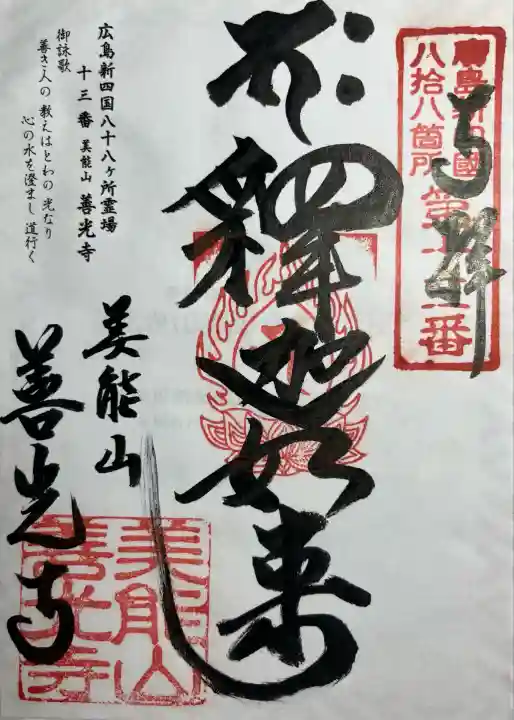 廣島新四國
八拾八箇所第十三番
奉拝
釋迦如来
広島新四国八十八ヶ所霊場
十三番 美能山 善光寺
御詠歌
善き人の 教えはとわの 光なり
心の水を澄まし 道行く
美能山
善光寺
美能山
善光寺